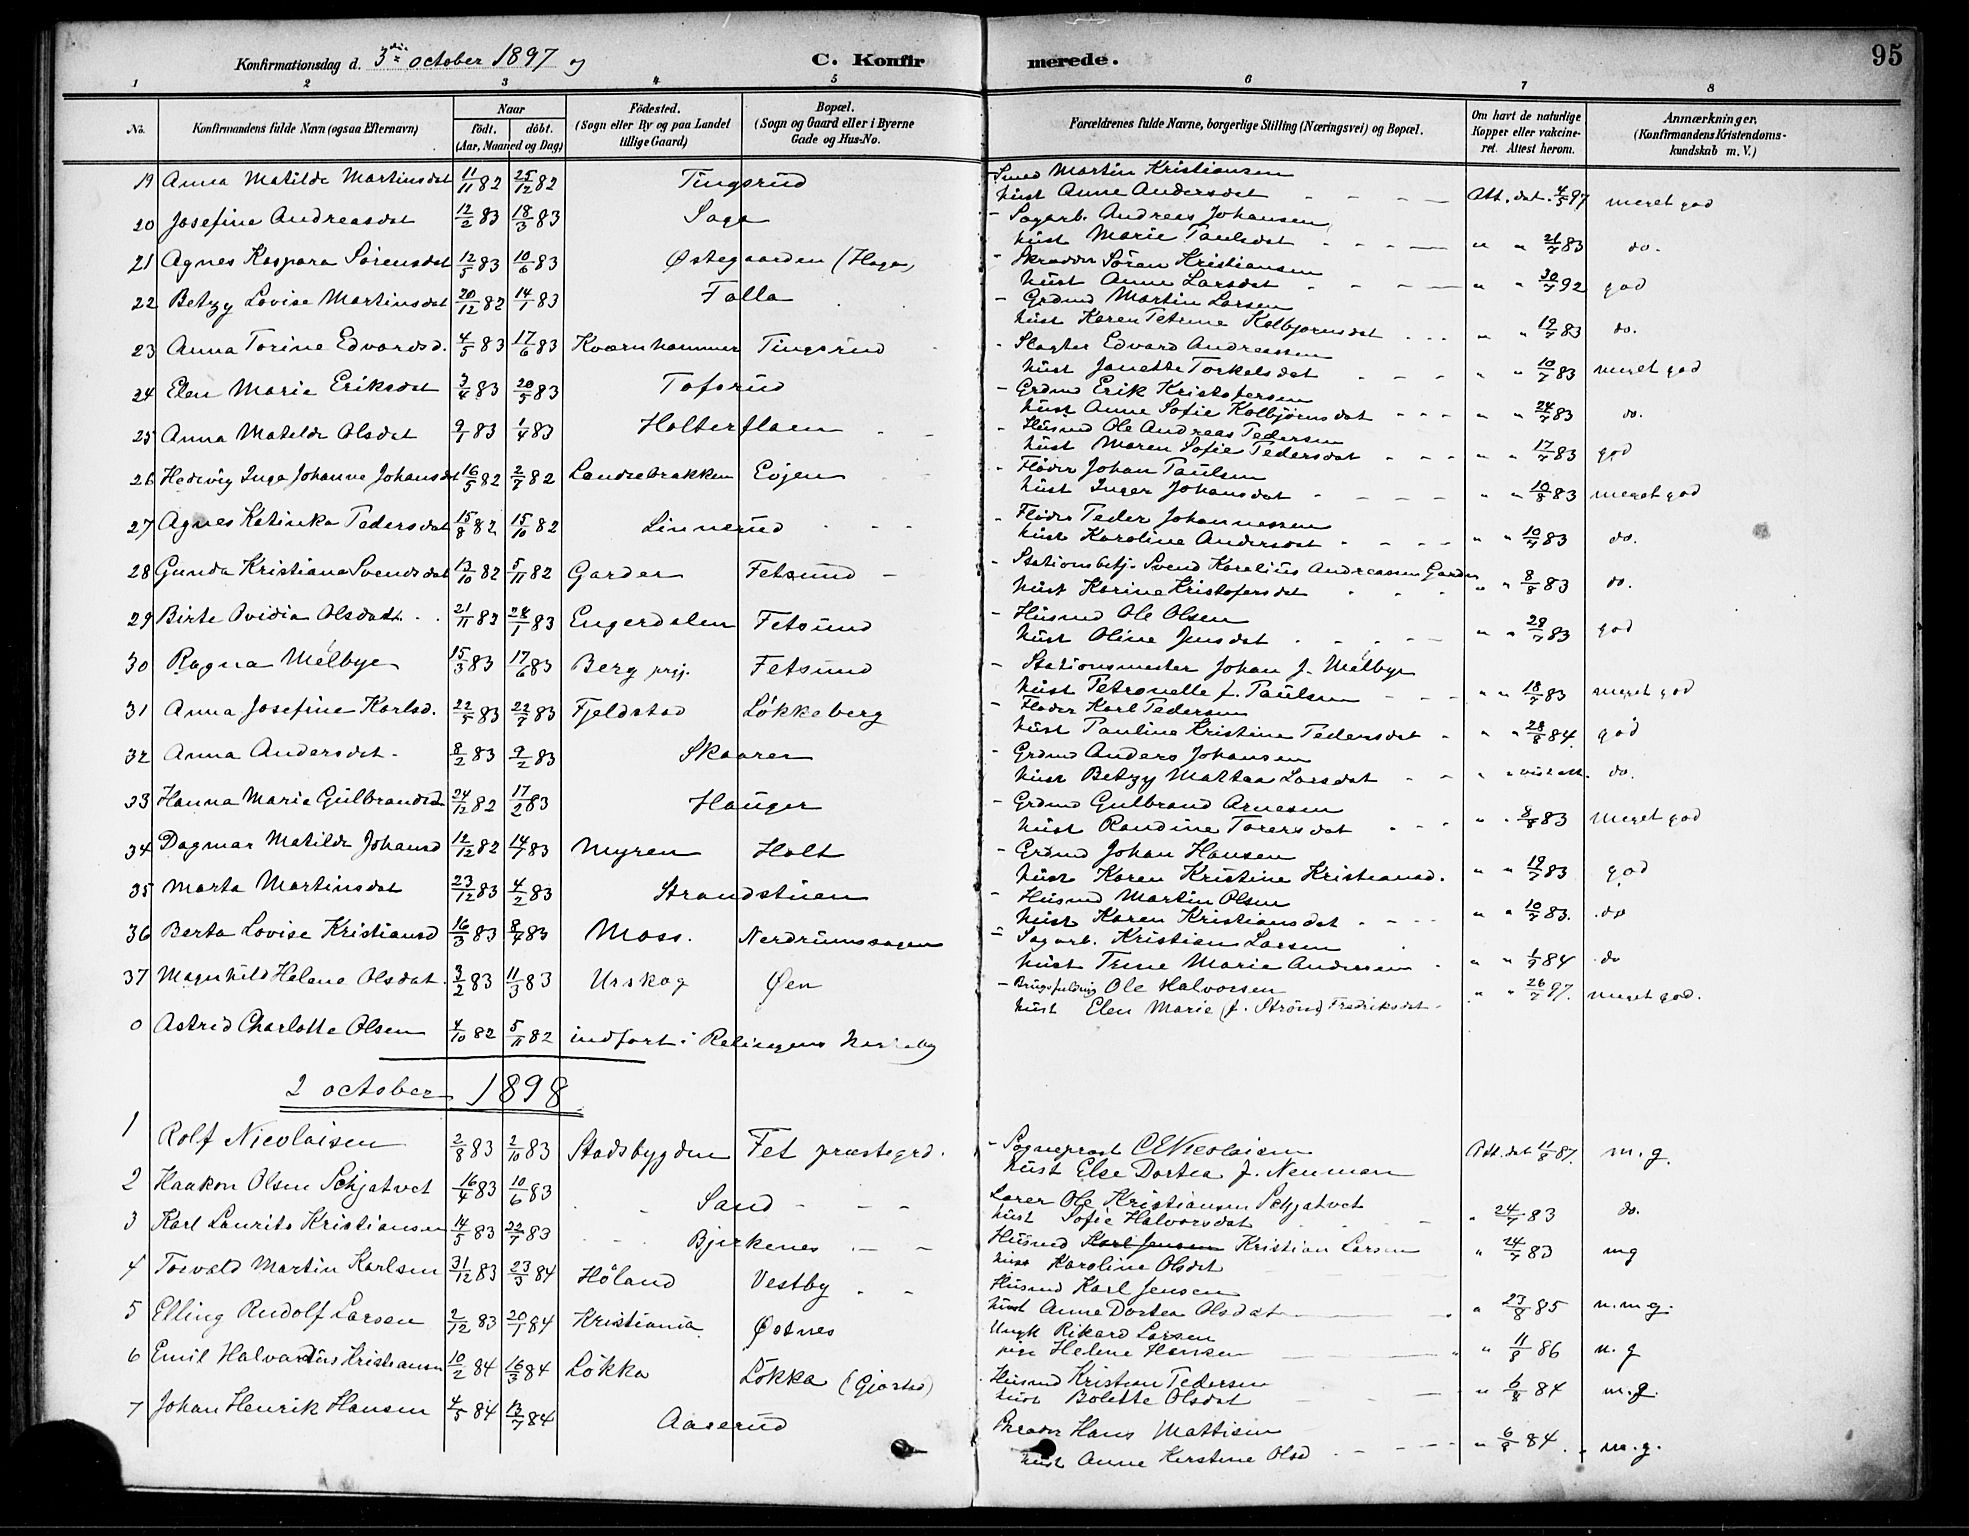 Konfirmationsdag d. 3die october 1897 og C. Konfirmerede. 95
1 2 3 4 5 6 7 8
No. Konfirmandens fulde Navn (ogsaa Efternavn) Naar födt. döbt. (Aar, Maaned og Dag) Födested. (Sogn eller By og paa Landet tillige Gaard) Bopæl. (Sogn og Gaard eller i Byerne Gade og Hus-No. Forældrenes fulde Navne, borgerlige Stilling (Næringsvei) og Bopæl. Om havt de naturlige Kopper eller vakcineret. Attest herom. Anmærkninger. (Konfirmandens Kristendomskundskab m. V.)
19 Anna Matilde Martinsdat 11/11 82 25/12 82 Tingsrud - Smed Martin Kristiansen
hust Anne Andersdat Att. dat. 4/5 97 meget god
20 Josefine Andreasdat 12/2 83 18/3 83 Saga - Sagarb. Andreas Johansen
hust Marie Paulsdat " " 21/7 83 do.
21 Agnes Kaspara Sörensdat 12/5 83 10/6 83 Østegaarden (Haga) - Skrædder Sören Kristiansen
hust Anne Larsdat " " 30/7 92 god
22 Betzy Lovise Martinsdat 20/12 82 14/1 83 Falla - Grdmd Martin Larsen
hust Karen Petrine Kolbjørnsdat " " 19/7 83 do.
23 Anna Torine Edvardsd. 4/5 83 17/6 83 Kværnhammer Tingsrud - Slagter Edvard Andreassen
hust Janette Torkelsdat " " 10/7 83 meget god
24 Elen Marie Eriksdat 3/4 83 20/5 83 Tofsrud - Grdmd Erik Kristofersen
hust Anne Sofie Kolbjörnsdat " " 24/7 83 do.
25 Anna Matilde Olsdat 9/1 83 1/4 83 Holterflaen - Husmd Ole Andreas Pedersen
hust Maren Sofie Pedersdat " " 17/7 83 god
26 Hedevig Inga Johanne Johansdat 16/5 82 2/7 82 Landsebrakken Evjen - Flöder Johan Paulsen
hust Inger Johansdat " " 10/8 83 meget god
27 Agnes Katinka Pedersdat 15/8 82 15/10 82 Linnerud - Flöder Peder Johannessen
hust Karoline Andersdat " " 10/7 83 do.
28 Gunda Kristiana Svendsdat 13/10 82 5/11 82 Garder Fetsund - Stationsbetj. Svend Korelius Andreassen Garder
hust Karine Kristofersdat " " 8/8 83 do.
29 Birte Ovidia Olsdatt. 21/11 82 28/1 83 Engerdalen Fetsund - Husmd Ole Olsen
hust Oline Jensdat " " 28/7 83 god
30 Ragna Mélbye 15/3 83 17/6 83 Berg prgj. Fetsund - Stationsmester Johan J. Mélbye
hust Petronelle f. Paulsen " " 18/7 83 meget god
31 Anna Josefine Karlsd. 22/5 83 22/7 83 Fjeldstad Lökkeberg - Flöder Karl Pedersen
hust Pauline Kristine Pedersdat " " 28/8 84. god
32 Anna Andersdat 8/2 83 9/2 83 Skaarer - Grdmd Anders Johansen
hust Betzy Mathea Larsdat do.
33 Hanna Marie Gulbrandsd 24/12 82 17/2 83 Hauger - Grdmd Gulbrand Arnesen
hust Randine Torersdat " " 8/8 83 meget god
34 Dagmar Matilde Johansd 12/12 82 14/7 83 Myren Holt - Grdmd Johan Hansen
hust Karen Kristine Kristiansd. " " 19/7 83 god
35 Marta Martinsdat 23/12 83 4/2 83 Strandstuen - Husmd Martin Olsen
hust Karen Kristiansdat " " 10/7 83. do
36 Berta Lovise Kristiansd 16/3 83 8/4 83 Moss. Nerdrumssagen - Sagarb. Kristian Larsen
hust Trine Marie Andersen " " 1/9 84 do
37 Magnhild Helene Olsdat 3/2 83 11/3 83 Urskog Øen - Brugsfuldmg Ole Halvorsen
hust Elen Marie f. Strönd Fredriksdat " " 26/7 97. meget god.
0 Astrid Charlotte Olsen 4/10 82 5/11 82 indfört i Relingens
2 october 1898
1 Rolf Nicolaisen 2/8 83 2/10 83 Stadsbygden Fet præstegrd. - Sogneprest C E Nicolaisen
hust Else Dortea f. Neuman Att. dat 11/8 87. m. g.
2 Haakon Olsen Schjatvet 16/4 83 10/6 83 Sand Lærer Ole Kristiansen Schjatvet
hust Sofie Halvorsdat " 24/7 83 do.
3 Karl Laurits Kristiansen 14/5 83 22/7 83 Bjerkenes Husmd Karl Jensen Kristian Larsen
hust Karoline Olsdat " 24/7 83 mg
4 Torvald Martin Karlsen 31/12 83 23/3 84 Höland Vestby Husmd Karl Jensen
hust Anne Dortea Olsdat " 23/8 85 n. m g.
5 Elling Rudolf Larsen 2/12 83 20/1 84 Kristiania Østnes Ungk Rikard Larsen
pige Helene Hansen " 11/8 86 m. g
6 Emil Halvardius Kristiansen 10/2 84 16/3 84 Lökka Lökka (Gjörstad) Husmd Kristian Pedersen
hust Bolette Olsdat " 6/8 84 m. g.
7 Johan Henrik Hansen 4/5 84 13/7 84 Aaserud Hans Mattisen
hust Anne Kerstine Olsd " 6/8 84. m. g.